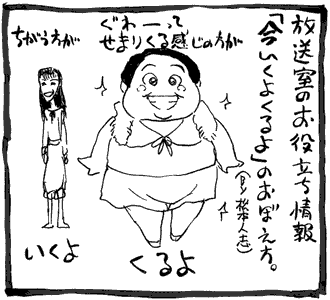 放送室のお役立ち情報
「今いくよくるよ」のおぼえ方。
(By 松本人志)
ぐわーって
せまりくる感じの方が
くるよ
ちがう方が
いくよ